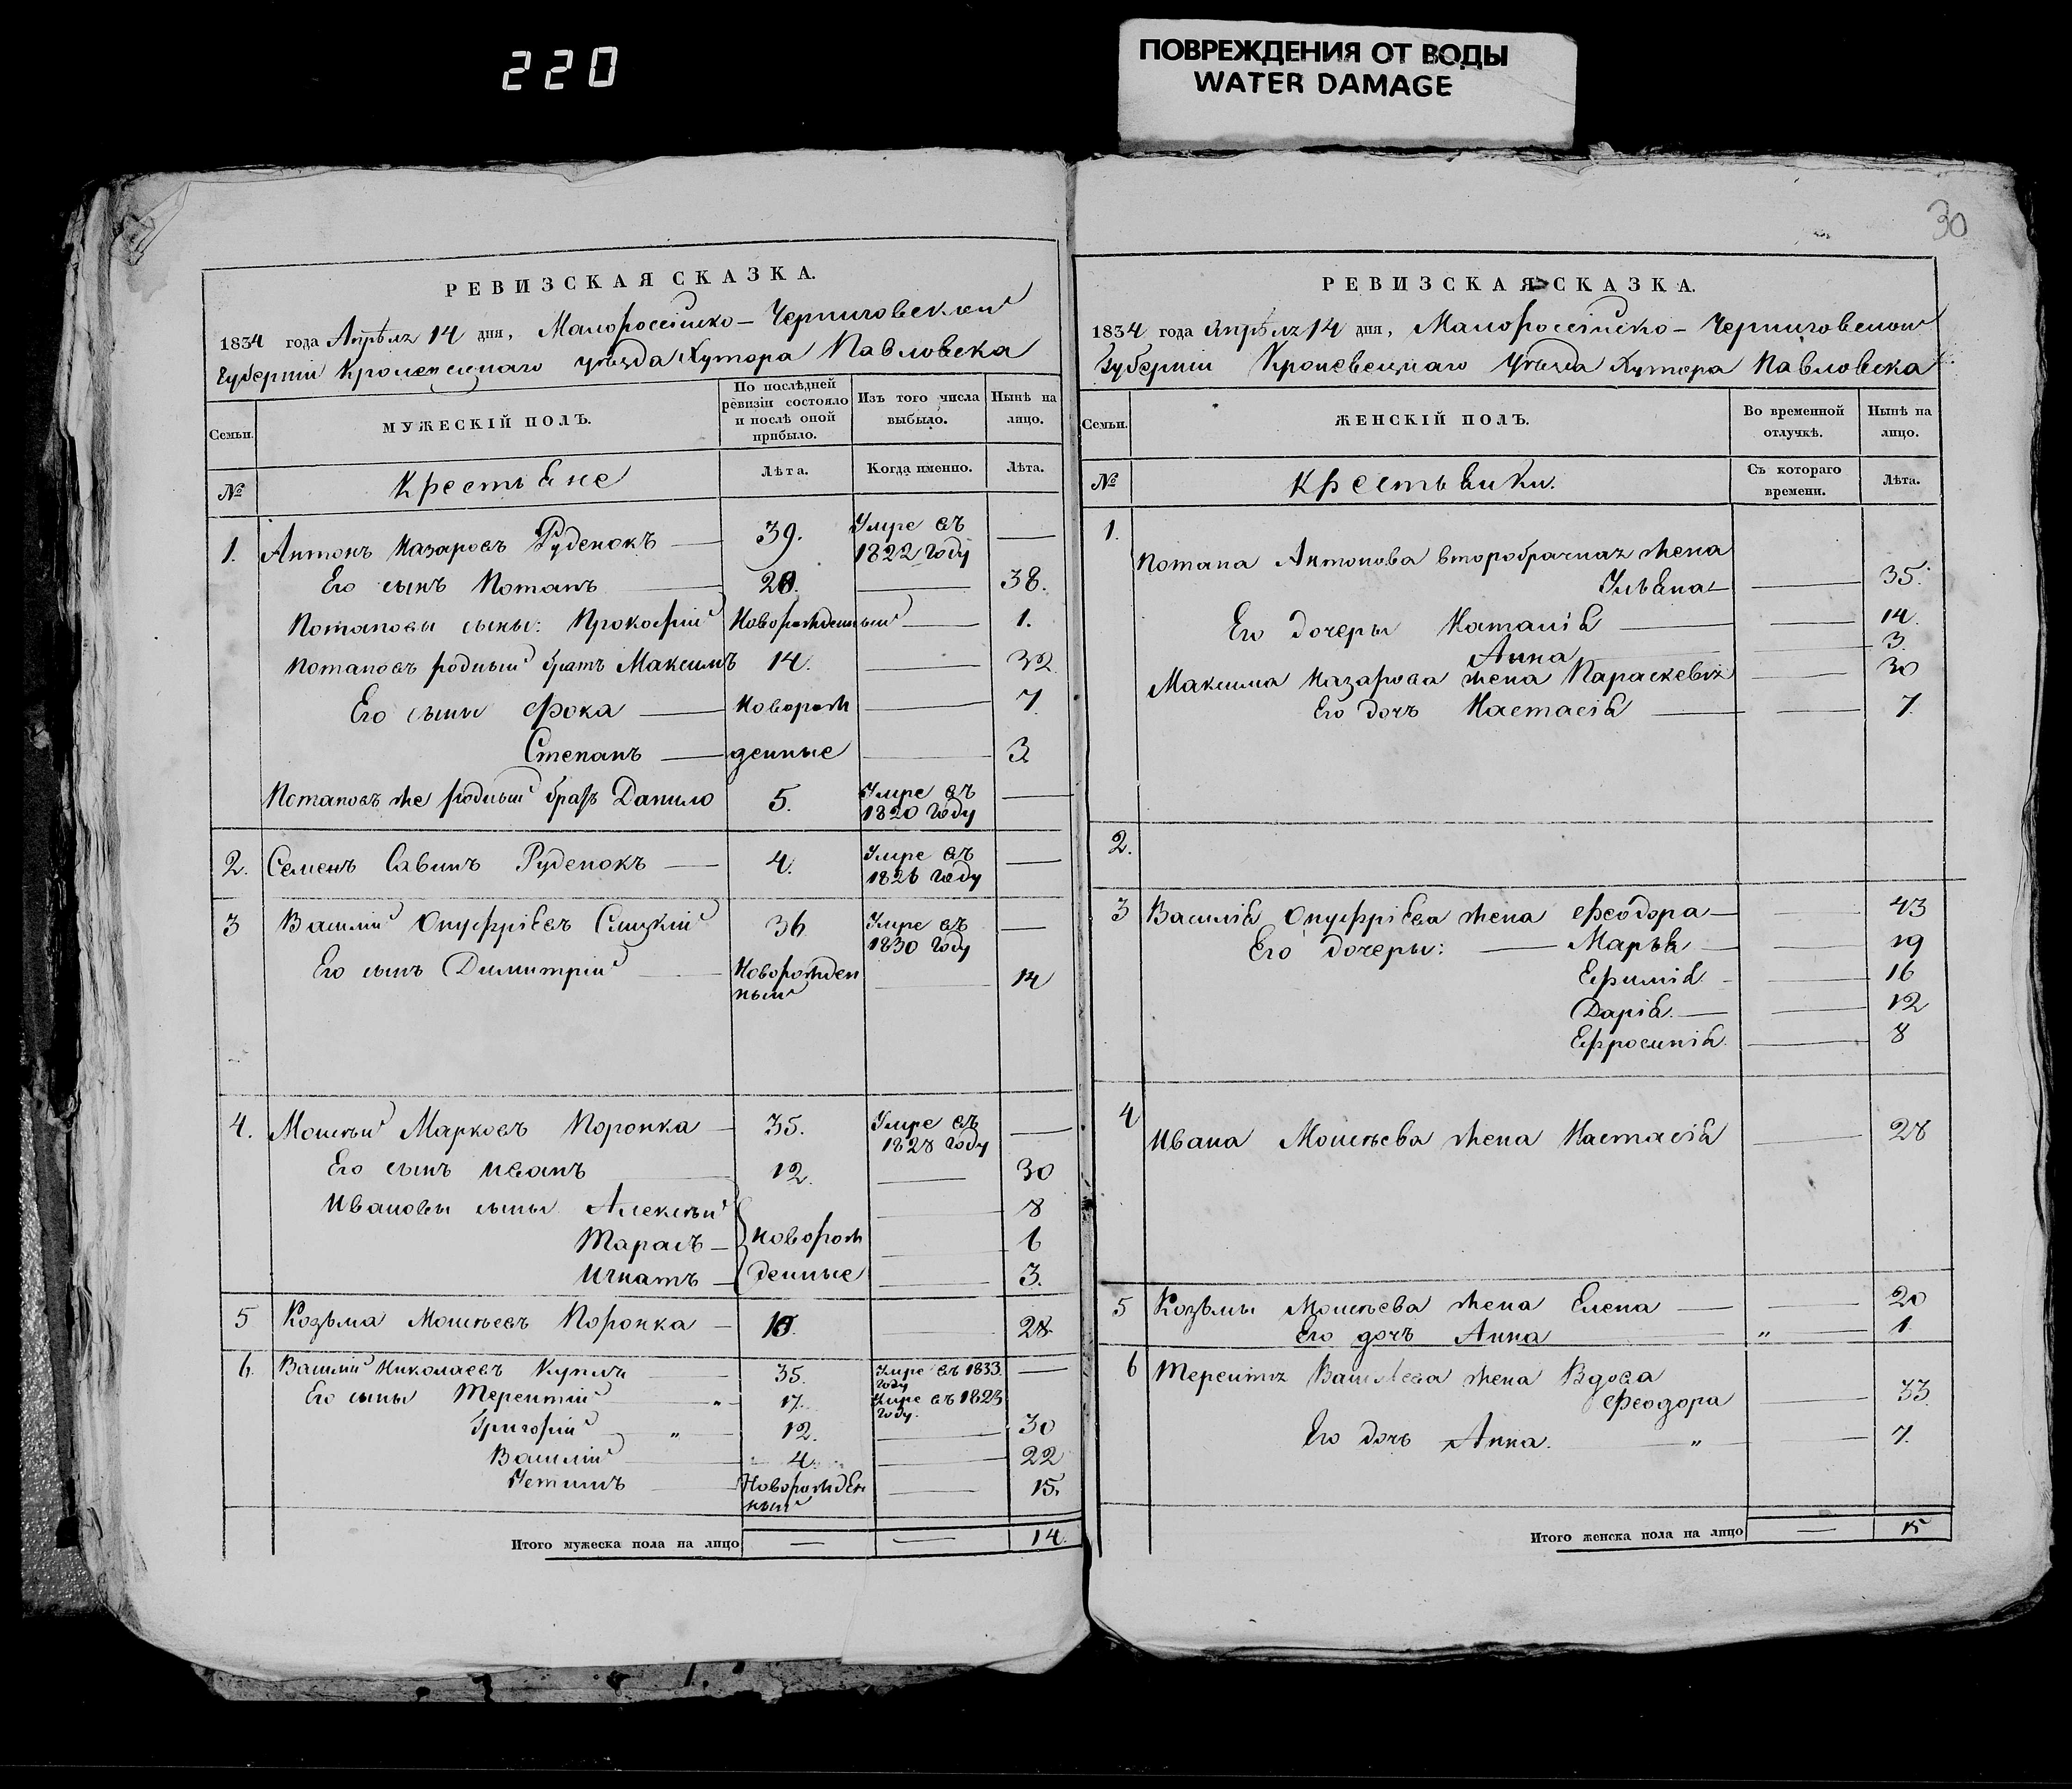 220
ПОВРЕЖДЕНИЯ ОТ ВОДЫ
WATER DAMAGE
30
РЕВИЗСКАЯ СКАЗКА.
1834 года Апрѣля 14 дня, Малороссійско-Черниговской
Губерніи Кролевецкаго уѣзда Хутора Павловска
Семьи.
МУЖЕСКІЙ ПОЛЪ.
По послѣдней ревизіи состояло и послѣ оной прибыло.
Изъ того числа выбыло.
Нынѣ на лицо.
№
Крестьяне
Лѣта.
Когда именно.
Лѣта.
1. Антонъ Назаровъ Руденокъ — 39. Умре въ 1822 году —
Его сынъ Потапъ — 20. — 38.
Потаповы сыны: Прокофій Новорожденный — 1.
Потаповъ родный братъ Максимъ 14. — 32
Его сыны Фока — Новорож — 7.
Степанъ — денные — 3
Потаповъ же родный братъ Данило 5. Умре въ 1820 году —
2. Семенъ Савинъ Руденокъ — 4. Умре въ 1826 году —
3 Василій Онуфріевъ Слизкій 36 Умре въ 1830 году —
Его сынъ Димитрій — Новорожденный — 14
4. Моисѣй Марковъ Поронка — 35. Умре въ 1828 году —
Его сынъ Иванъ — 12. — 30
Ивановы сыны Алексѣй — 8
Тарасъ — Новорож — 6
Игнатъ — денные — 3.
5 Козьма Моисѣевъ Поронка — 10. — 28.
6. Василій Николаевъ — 35. Умре въ 1833 году —
Его сыны Терентій „ — 17. Умре въ 1828 году.
Григорій „ — 12. — 30
Василій — 4. — 22
Устимъ — Новорожденный — 15.
Итого мужеска пола на лицо — — 14.
РЕВИЗСКАЯ СКАЗКА.
1834 года Апрѣля 14 дня, Малороссійско-Черниговской
Губерніи Кролевецкаго Уѣзда Хутора Павловска
Семьи.
ЖЕНСКІЙ ПОЛЪ.
Во временной отлучкѣ.
Нынѣ на лицо.
№
Крестьянки.
Съ котораго времени.
Лѣта.
1.
Потапа Антонова второбрачная жена
Ульяна — 35.
Его дочеры Наталія — 14.
Анна — 3.
Максима Назарова жена Параскевія — 30
Его дочь Настасія — 7.
2.
3 Василія Онуфріева жена Феодора — 43
Его дочеры: — Марья — 19
Ефимія — 16
Дарія — 12
Ефросинія — 8
4
Ивана Моисѣева жена Настасія — 28
5 Козьмы Моисѣева жена Елена — 20
Его дочь Анна „ — 1
6 Терентія Васильева жена Вдова
Феодора — 33.
Его дочь Анна. „ — 7.
Итого женска пола на лицо — 15